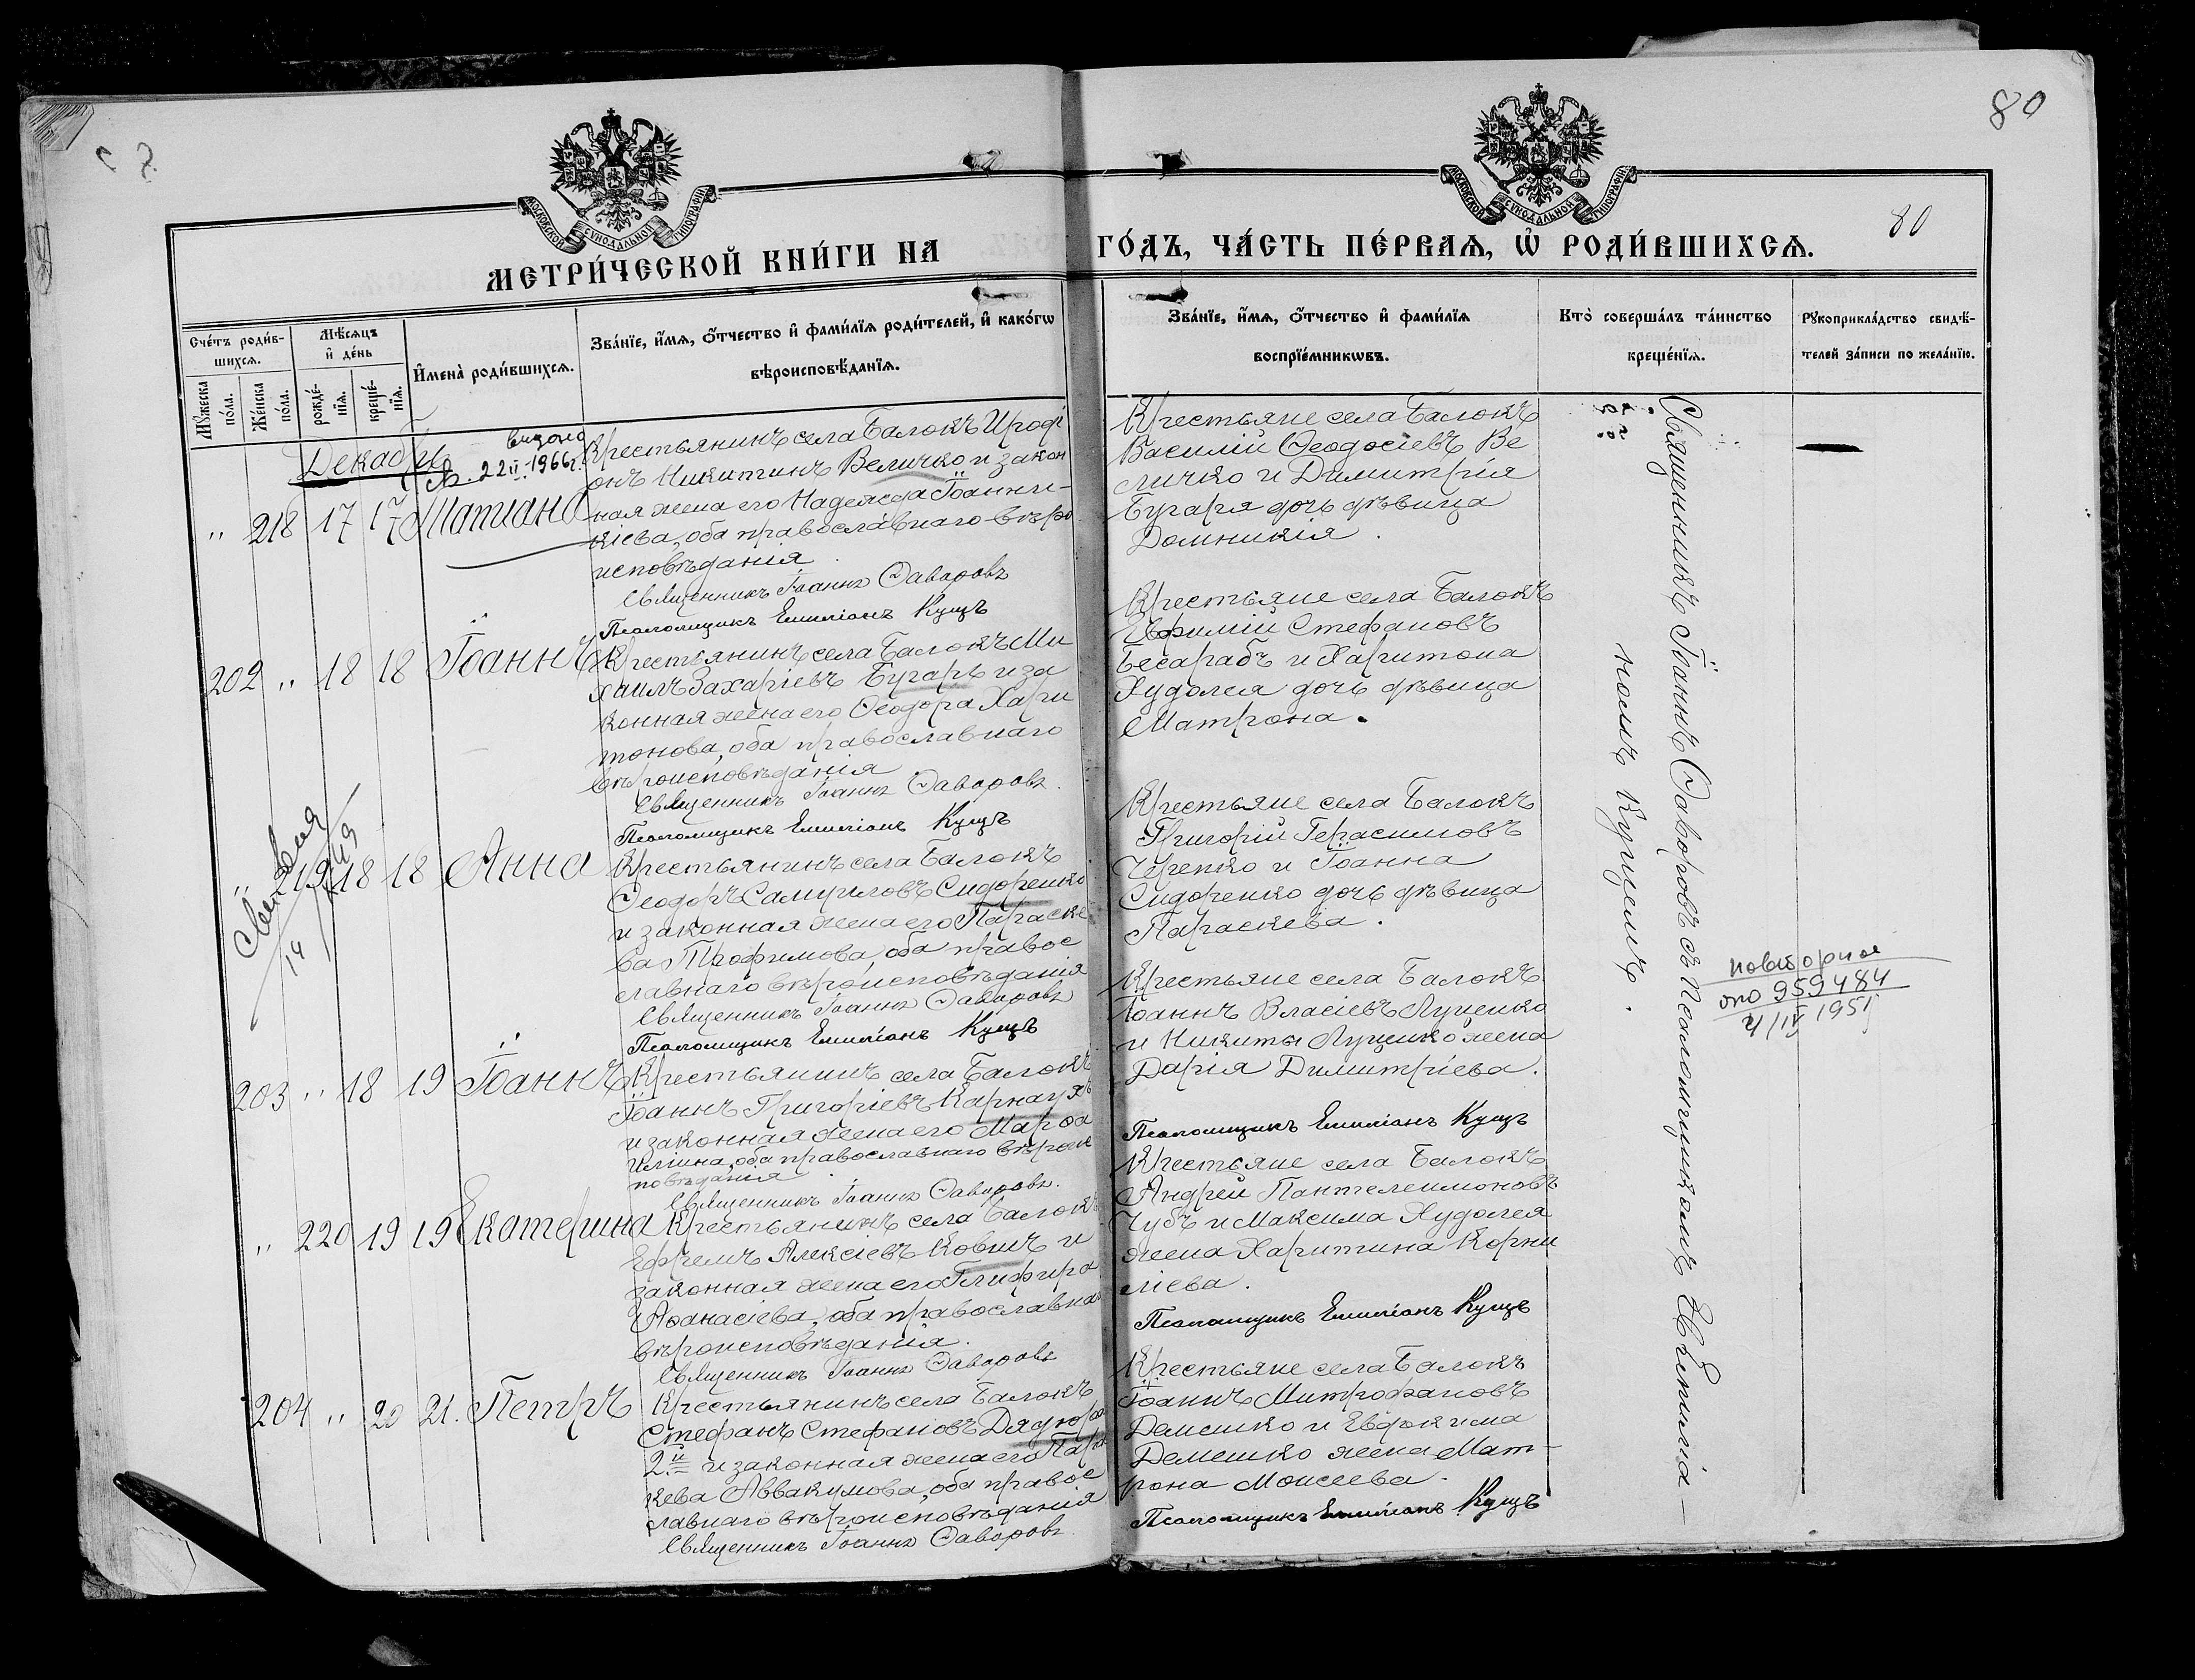 80
МОСКОВСКОЙ СУНОДАЛЬНОЙ ТИПОГРАФІИ
МОСКОВСКОЙ СУНОДАЛЬНОЙ ТИПОГРАФІИ
80
МЕТРИ́ЧЕСКОЙ КНИ́ГИ НА
ГО́ДЪ, ЧА́СТЬ ПЕ́РВАѦ, Ѡ҆ РОДИ́ВШИХСѦ.
Сче́тъ роди́в-
шихсѧ.
Мꙋ́жеска по́ла.
Же́нска по́ла.
Мѣ́сѧцъ
и҆ де́нь
рожде́-
нїѧ.
креще́-
нїѧ.
И҆мена̀ роди́вшихсѧ.
Зва́нїе, и҆́мѧ, ѻ҆́тчество и҆ фами́лїѧ роди́телей, и҆ како́гѡ
вѣроисповѣ́данїѧ.
Зва́нїе, и҆́мѧ, ѻ҆́тчество и҆ фами́лїѧ
воспрїе́мникѡвъ.
Кто̀ соверша́лъ та́инство
креще́нїѧ.
Рꙋкоприкла́дство свидѣ́-
телей за́писи по жела́нїю.
Декабрь
22 II. 1966 г.
" 218 17 17 Татиана
Крестьянинъ села Балокъ Ироді
онъ Никитинъ Величко и закон
ная жена его Надежда Іоанни-
кіева, оба православнаго вѣро
исповѣданія
Священникъ Іоаннъ Ѳаворовъ
Псаломщикъ Емиліанъ Кущъ
Крестьяне села Балокъ
Василій Ѳеодосіевъ Ве
личко и Димитрія
Бугаря дочь дѣвица
Домникія.
202 " 18 18 Іоаннъ
Крестьянинъ села Балокъ Ми
хаилъ Захаріевъ Бугарь и за
конная жена его Ѳеодора Хари
тонова, оба православнаго
вѣроисповѣданія
Священникъ Іоаннъ Ѳаворовъ.
Псаломщикъ Емиліанъ Кущъ
Крестьяне села Балокъ
Евфимій Стефановъ
Бесарабъ и Харитона
Худолея дочь дѣвица
Матрона.
" 219 18 18 Анна
14
Крестьянинъ села Балокъ
Ѳеодоръ Самуиловъ Сидоренко
и законная жена его Параске
ва Трофимова, оба правос
славнаго вѣроисповѣданія
Священникъ Іоаннъ Ѳаворовъ
Псаломщикъ Емиліанъ Кущъ
Крестьяне села Балокъ
Григорій Герасимовъ
Черепко и Іоанна
Сидоренко дочь дѣвица
Параскева.
203 " 18 19 Іоаннъ
Крестьянинъ села Балокъ
Іоаннъ Григоріевъ Карнаухъ
и законная жена его Марѳа
Иліина, оба православнаго вѣроис
повѣданія
Священникъ Іоаннъ Ѳаворовъ.
Крестьяне села Балокъ
Іоаннъ Власіевъ Луценко
и Никиты Луценко жена
Дарія Димитріева.
Псаломщикъ Емиліанъ Кущъ
" 220 19 19 Екатерина
Крестьянинъ села Балокъ
Ефремъ Алексіевъ Ковшъ и
законная жена его Глифира
Аѳанасіева, оба православнаго
вѣроисповѣданія.
Священникъ Іоаннъ Ѳаворовъ
Крестьяне села Балокъ
Андрей Пантелеимоновъ
Чубъ и Максима Худолея
жена Харитина Корни
ліева.
Псаломщикъ Емиліанъ Кущъ
204 " 20 21. Петръ
Крестьянинъ села Балокъ
Стефанъ Стефановъ Дядюра
2й и законная жена его Парас
кева Аввакумова, оба правос
лавнаго вѣроисповѣданія
Священникъ Іоаннъ Ѳаворовъ
Крестьяне села Балокъ
Іоаннъ Митрофановъ
Демешко и Евфкима
Демешко жена Мат-
рона Моисеева.
Псаломщикъ Емиліанъ Кущъ
Священникъ Іоаннъ Ѳаворовъ съ Псаломщикомъ Емиліа-
номъ Кущемъ.
повторное
959484
4/IV 1951